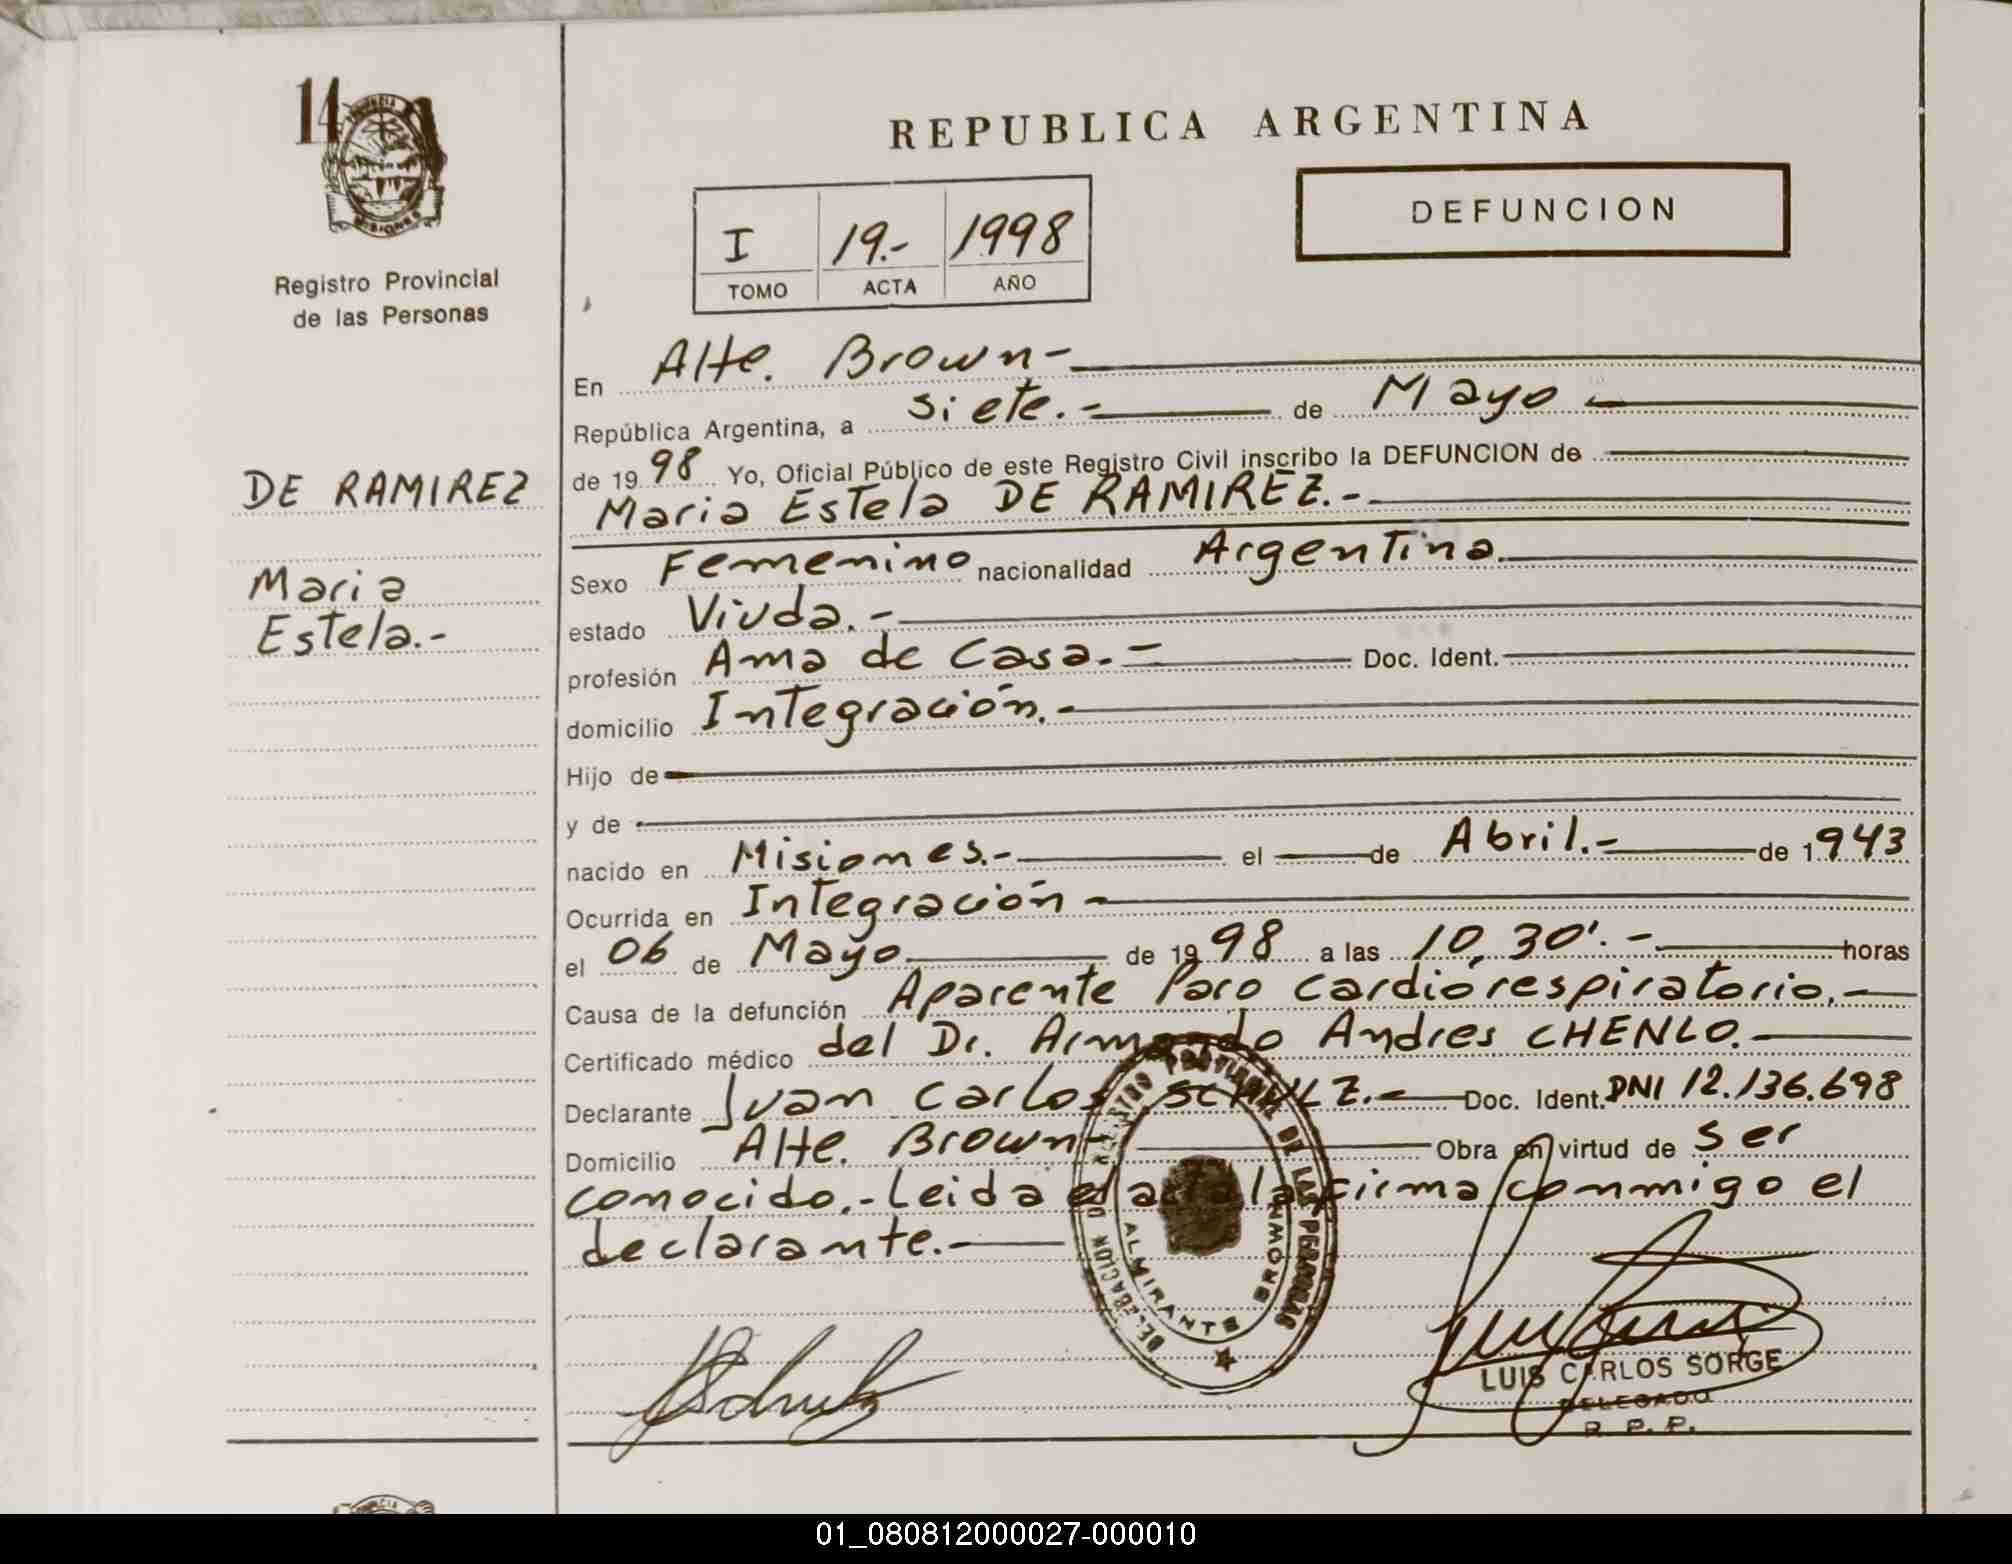 14
PROVINCIA
MISIONES
Registro Provincial
de las Personas
DE RAMIREZ
Maria
Estela.-
REPUBLICA ARGENTINA
DEFUNCION
I 19.- 1998
TOMO ACTA AÑO
En Alte. Brown-
República Argentina, a siete.- de Mayo-
de 1998 Yo, Oficial Público de este Registro Civil inscribo la DEFUNCION de
Maria Estela DE RAMIREZ.-
Sexo Femenino nacionalidad Argentina.
estado Viuda.-
profesión Ama de Casa.- Doc. Ident.
domicilio Integración.-
Hijo de
y de
nacido en Misiones.- el de Abril.- de 1943
Ocurrida en Integración-
el 06 de Mayo de 1998 a las 10,30'.- horas
Causa de la defunción Aparente Paro cardiorespiratorio.-
Certificado médico del Dr. Armando Andres CHENLO.
Declarante Juan Carlos SCHULZ.- Doc. Ident. DNI 12.136.698
Domicilio Alte. Brown- Obra en virtud de ser
conocido.-Leida el acta la firma conmigo el
declarante.-
DELEGACION DEL REGISTRO PROVINCIAL DE LAS PERSONAS
ALMIRANTE BROWN
LUIS CARLOS SORGE
DELEGADO
R. P. P.
01_080812000027-000010